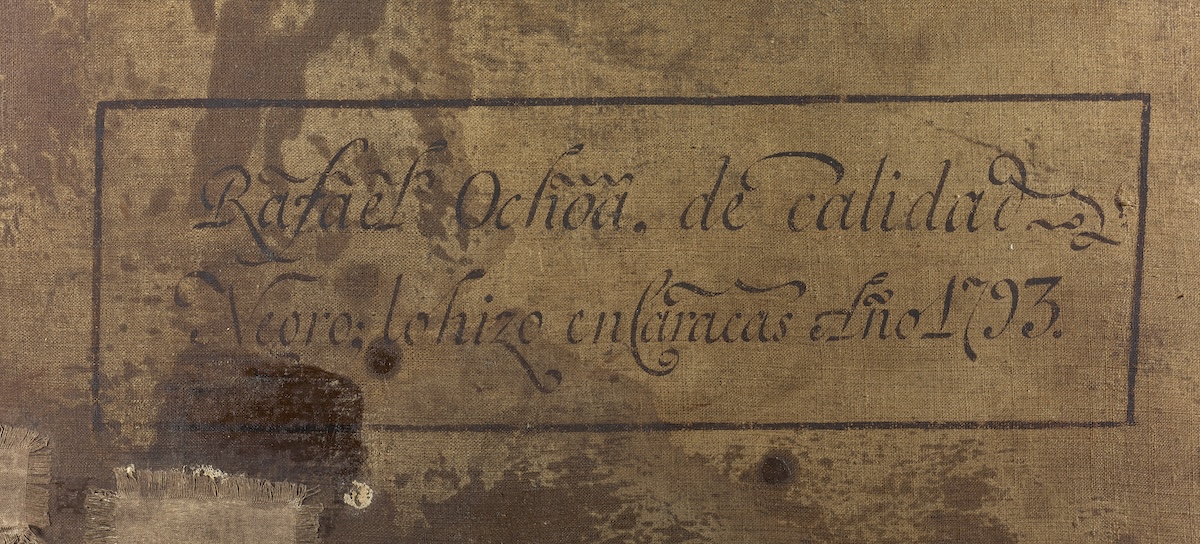 Rafael Ochoa. de calidad
Negro; lo hizo en Caracas Año 1793.